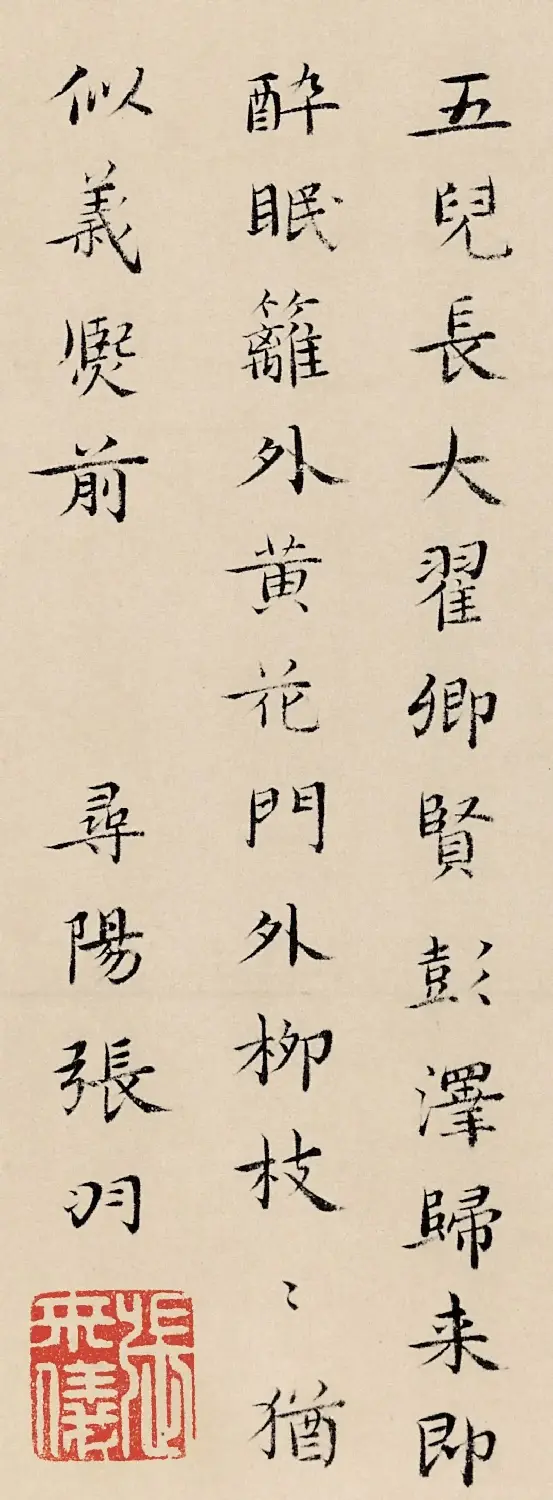 五兒長大翟卿賢彭澤歸来即
醉眠籬外黄花門外柳枝〻猶
似義熈前 尋陽張羽
張來儀